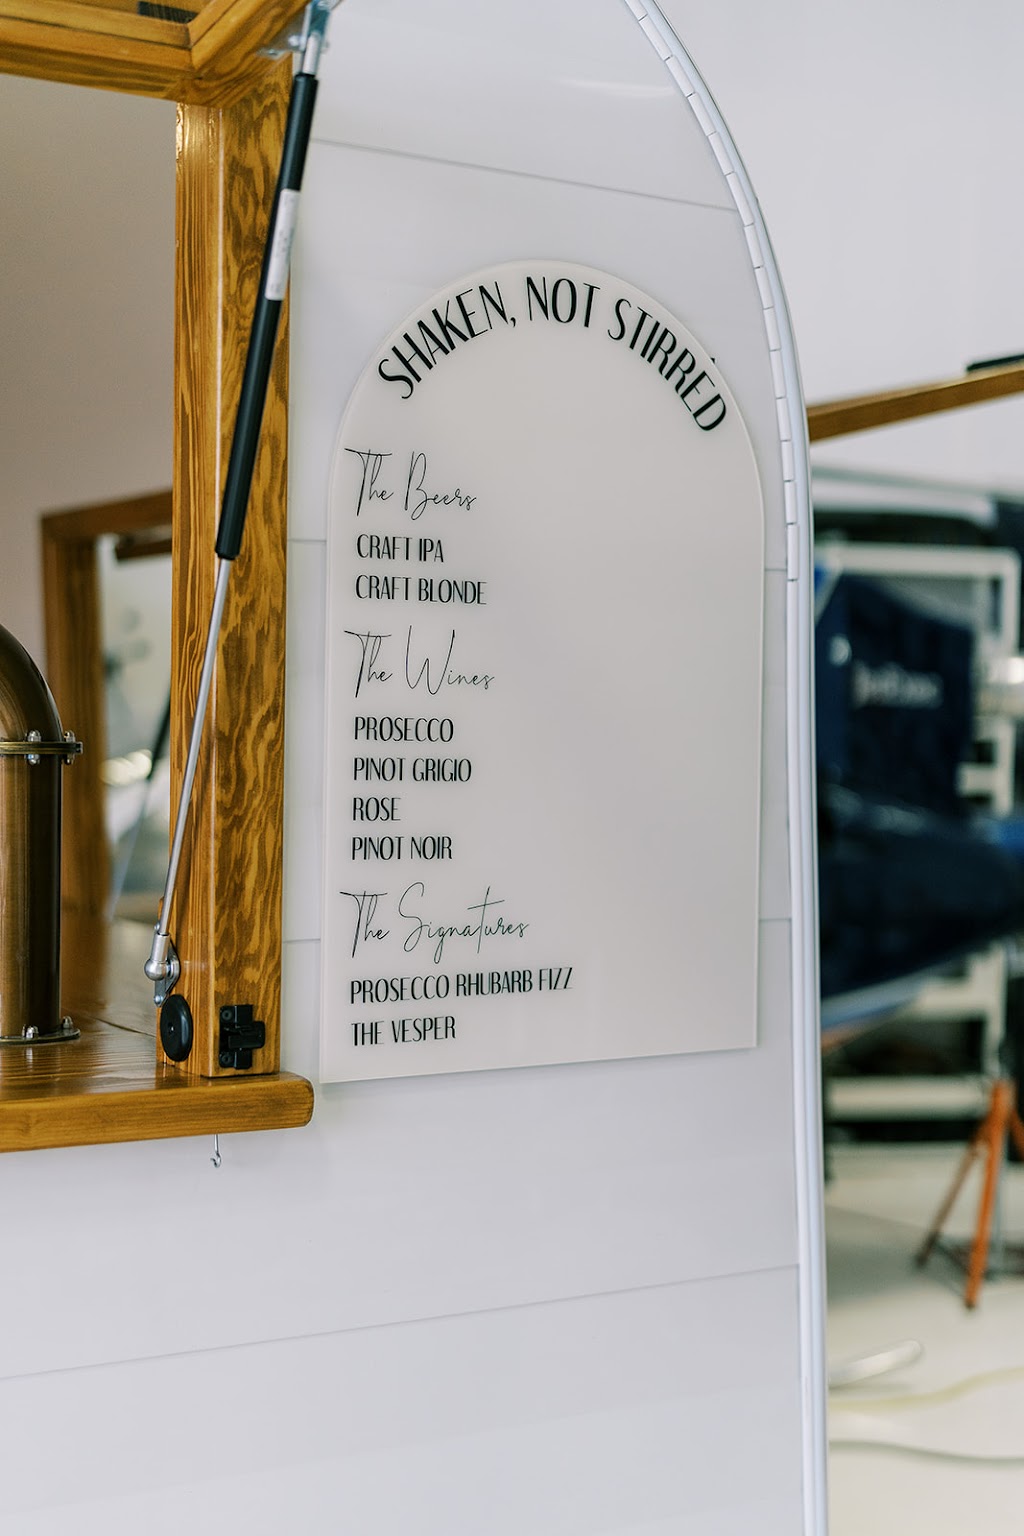 SHAKEN, NOT STIRRED
The Beers
CRAFT IPA
CRAFT BLONDE
The Wines
PROSECCO
PINOT GRIGIO
ROSE
PINOT NOIR
The Signatures
PROSECCO RHUBARB FIZZ
THE VESPER